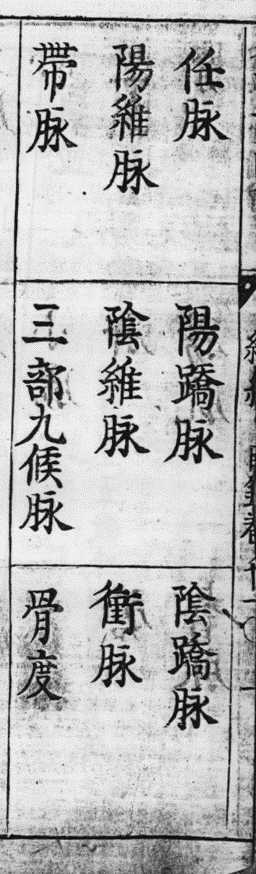 任脉
陽蹻脉
陰蹻脉
陽維脉
陰維脉
衝脉
帶脉
三部九候脉
骨度